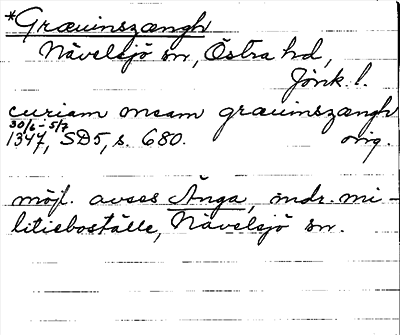 *Græuinszængh
Nävelsjö sn, Östra hd,
Jönk. l.
curiam meam græuinszængh
30/6-5/7
1347, SD5, s. 680. orig.
möjl. avses Änga, mdr. mi-
litieboställe, Nävelsjö sn.